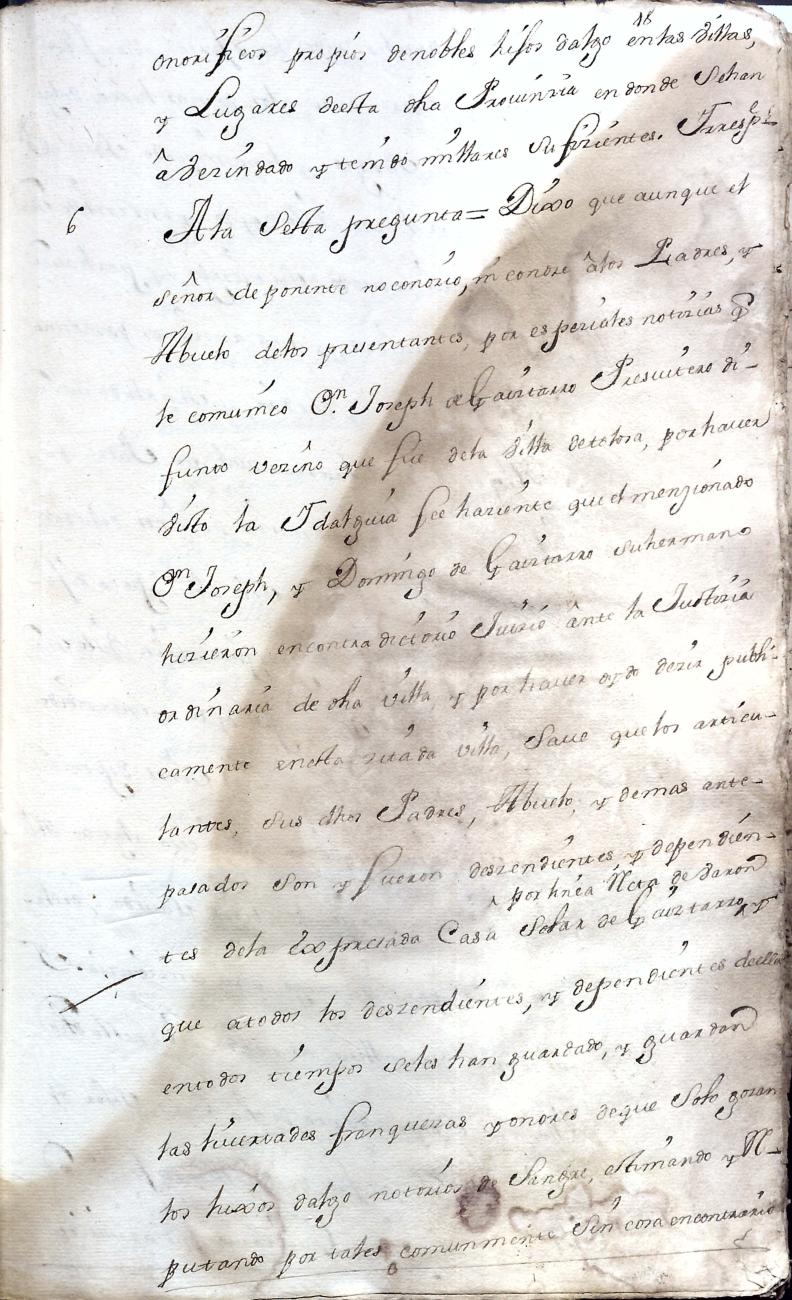 18
onorificos propios denobles hisos dalgo enlas Villas,
y Lugares deesta dha Provinzia en donde Sehan
aVezindado y tenido millares Sufizientes. Y resp.de
6 Ala Sesta pregunta = Dixo que aunque el
señor de ponente noconozio, ni conoze alos Padres, y
Abuelo delos presentantes, por espeziales notizias q
le comunico Dn. Joseph de Gaiztarro Presvitero di-
funto vezino que fue dela Villa detolosa, por haver
visto la Idalguia fee haziente que el menzionado
Dn Joseph, y Domingo de Gaiztarro suhermano
hizieron encontra dictorio Juizio ante la Justizia
ordinaria de dha villa, y por haver oydo dezir publi-
camente enesta zitada villa, Save quelos articu-
lantes, sus dhos Padres, Abuelo, y demas ante-
pasados son y fueron deszendientes, y dependien-
^ por linea Recta de Varon
tes dela Expresada Casa Solar de Gaiztarro ^, y
que atodos los deszendientes, y dependientes deella
entodos tiempos seles han guardado, y guardan
las livertades franquezas yonores deque Solo gozan
los hixos dalgo notorios de Sangre, estimando y Re-
putando por tales comunmente Sin cosa encontrario